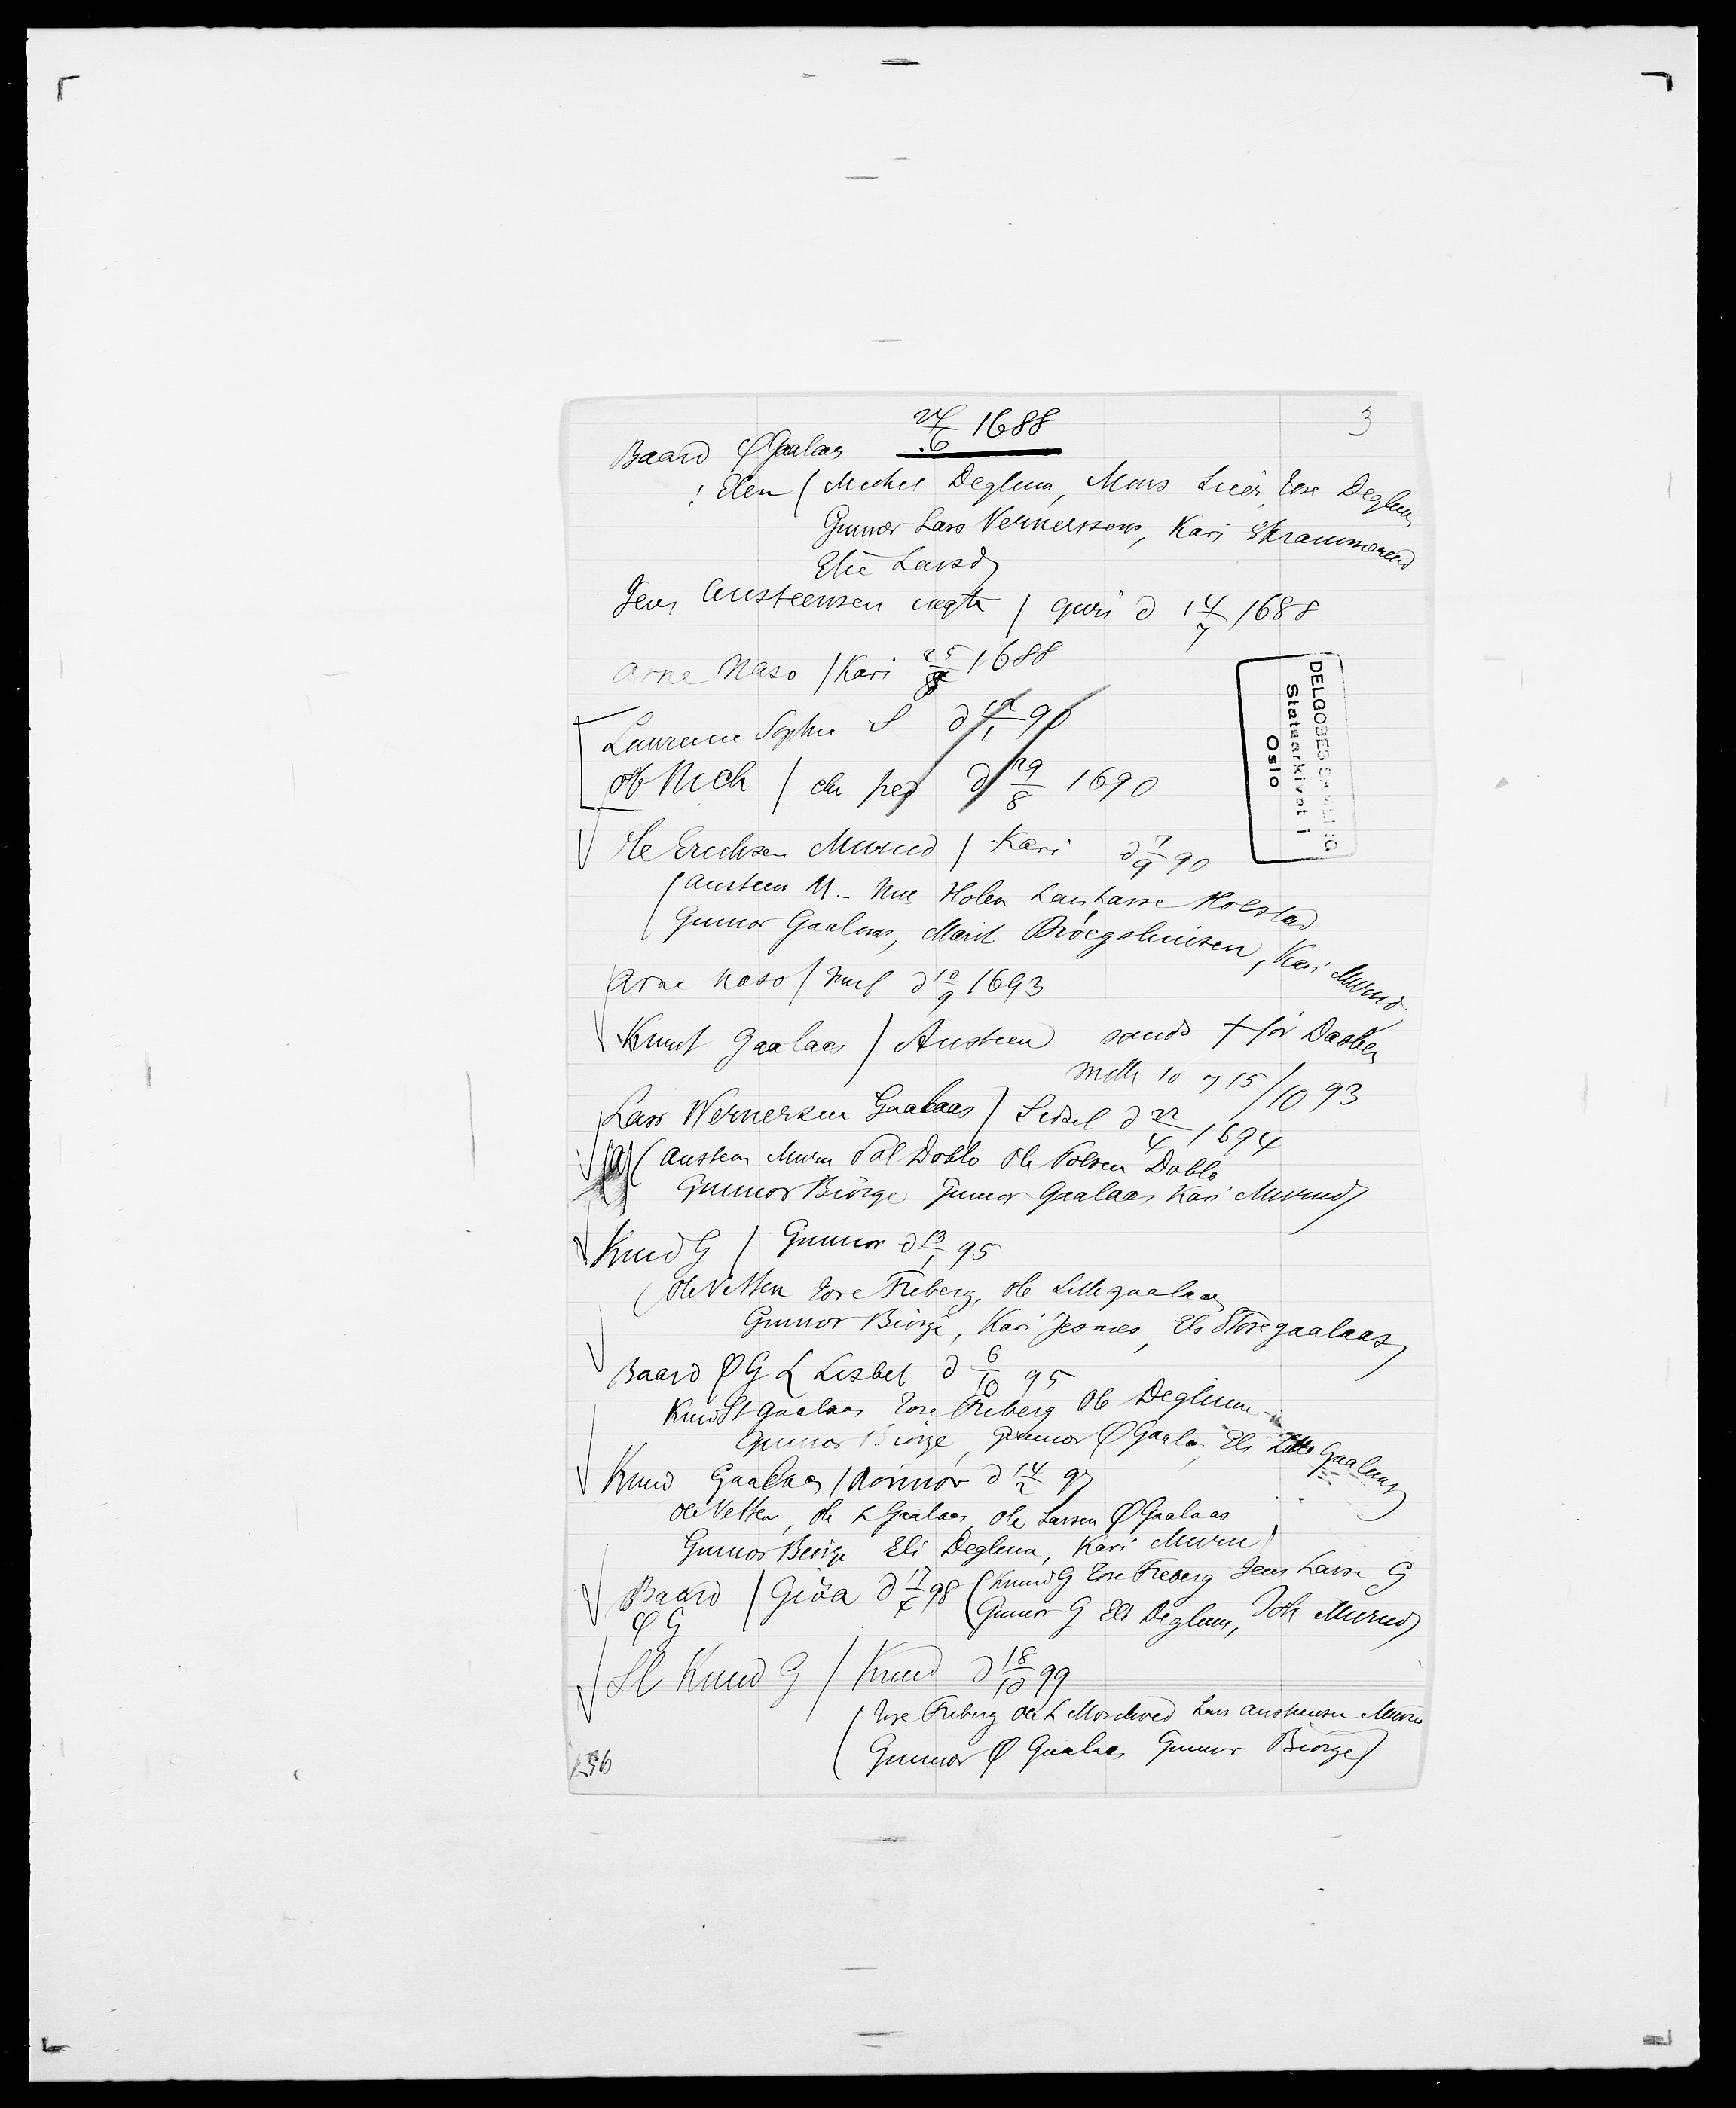 24/6 1688
3
Baard Ø Gaalaas
: Elen ( Michel Deglum, Mons Lier, Tore Deglum
Gunnor Lars Vernerssens, Kari Skrammerud
Elie Larsd)
Jens Austeensen / guri d 14/7 1688
Arne Naso / Kari 25/8 1688
Laurence Sophie S d 12/1 90
Ole Nich / d 29/8 1690
Ole Erichsen Murud / Kari d 7/9 90
( Austeen M. Holen Lars Larsse Holstad
Gunnor Gaalaas, Marit, Kari Murud
Arne Naso / d 10/9 1693
Knut Gaalaas / Austeen sands † før Daaben
mell 10 og 15/10 93
Lars Wernersen Gaalaas / Sidsel d 22/4 1694
( Austeen Muru Pal Doblo Ole Polsen Doblo
Gunnor Biörge Gunnor Gaalaas Kari Murud)
Knud G / Gunnor d 13/1 95
( Ole Vetten Tore Freberg, Ole Lillegaalaas
Gunnor Biörge, Kari Jesnes, Eli Storegaalaas)
Baard Ø G Lisbet d 6/10 95
Knud St Gaalaas Tore Freberg Ole Deglum
Gunnor Biörge, Gunnor Ø Gaala, Eli Lille Gaalaas)
Knud Gaalaas / d 14/2 97
Ole Vetten, Ole L Gaalaas, Ole Larsen Ø Gaalaas
Gunnor Biörge Eli Deglum, Kari Muru)
Baard / Giöa d 17/4 98 ( Knud G Tore Freberg Jens Larse G
Ø G
Gunnor G Eli Deglum, Murud)
St Knud G / Knud d 18/10 99
( Tore Freberg Ole L Lars Austeensen Muru
Gunnor Ø Gaalaas Gunnor Biörge)
DELGOBES SAMLING
Statsarkivet i
Oslo